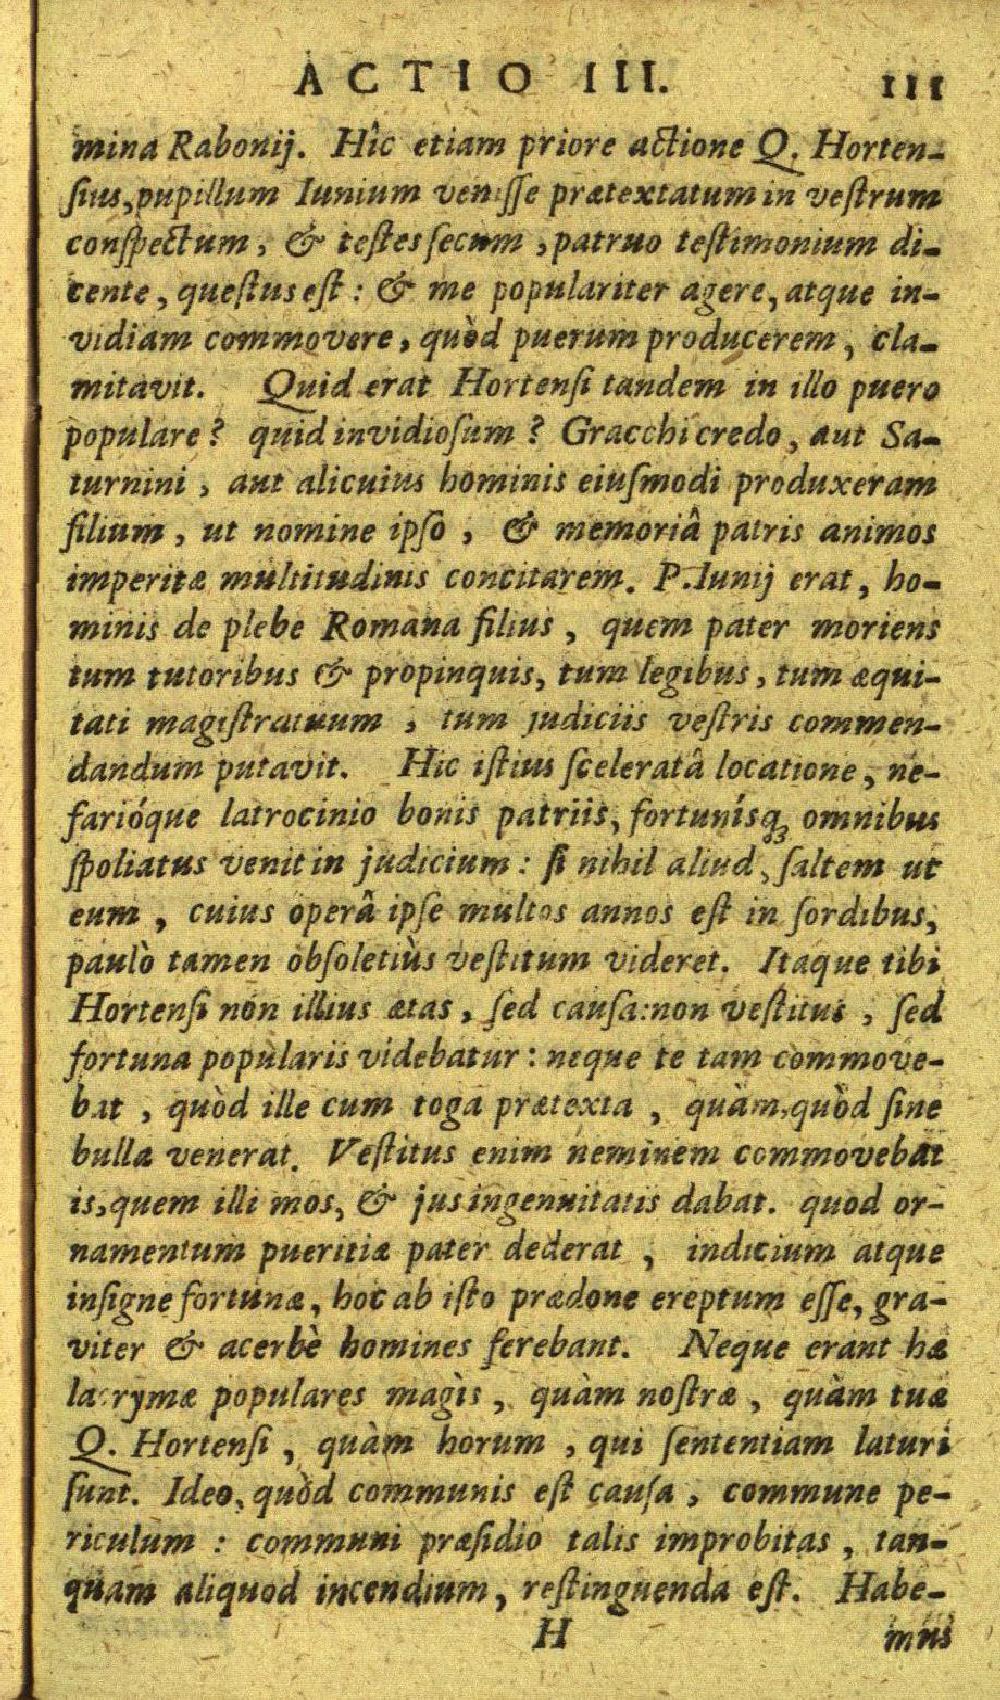 ACTIO III. 111
mina Rabonij. Hîc etiam priore actione Q. Horten-
ſius, pupillum Iunium veniſſe prætextatum in veſtrum
conſpectum, & teſtes ſecum, patruo teſtimonium di-
cente, queſtus eſt: & me populariter agere, atque in-
vidiam commovere, quòd puerum producerem, cla-
mitavit. Quid erat Hortenſi tandem in illo puero
populare? quid invidioſum? Gracchi credo, aut Sa-
turnini, aut alicuius hominis eiuſmodi produxeram
filium, ut nomine ipſo, & memoriâ patris animos
imperitæ multitudinis concitarem. P. Iunij erat, ho-
minis de plebe Romana filius, quem pater moriens
tum tutoribus & propinquis, tum legibus, tum æqui-
tati magiſtratuum, tum judiciis veſtris commen-
dandum putavit. Hic iſtius ſceleratâ locatione, ne-
farióque latrocinio bonis patriis, fortuníſqꝫ omnibus
ſpoliatus venit in judicium: ſi nihil aliud, ſaltem ut
eum, cuius operâ ipſe multos annos eſt in ſordibus,
paulò tamen obſoletiùs veſtitum videret. Itaque tibi
Hortenſi non illius ætas, ſed cauſa: non veſtitus, ſed
fortuna popularis videbatur: neque te tam commove-
bat, quòd ille cum toga prætexta, quàm, quòd ſine
bulla venerat. Veſtitus enim neminem commovebat
is, quem illi mos, & jus ingenuitatis dabat. quod or-
namentum pueritiæ pater dederat, indicium atque
inſigne fortunæ, hoc ab iſto prædone ereptum eſſe, gra-
viter & acerbè homines ferebant. Neque erant hæ
lacrymæ populares magìs, quàm noſtræ, quàm tuæ
Q. Hortenſi, quàm horum, qui ſententiam laturi
ſunt. Ideo, quòd communis eſt cauſa, commune pe-
riculum: communi præſidio talis improbitas, tan-
quam aliquod incendium, reſtinguenda eſt. Habe-
H mus